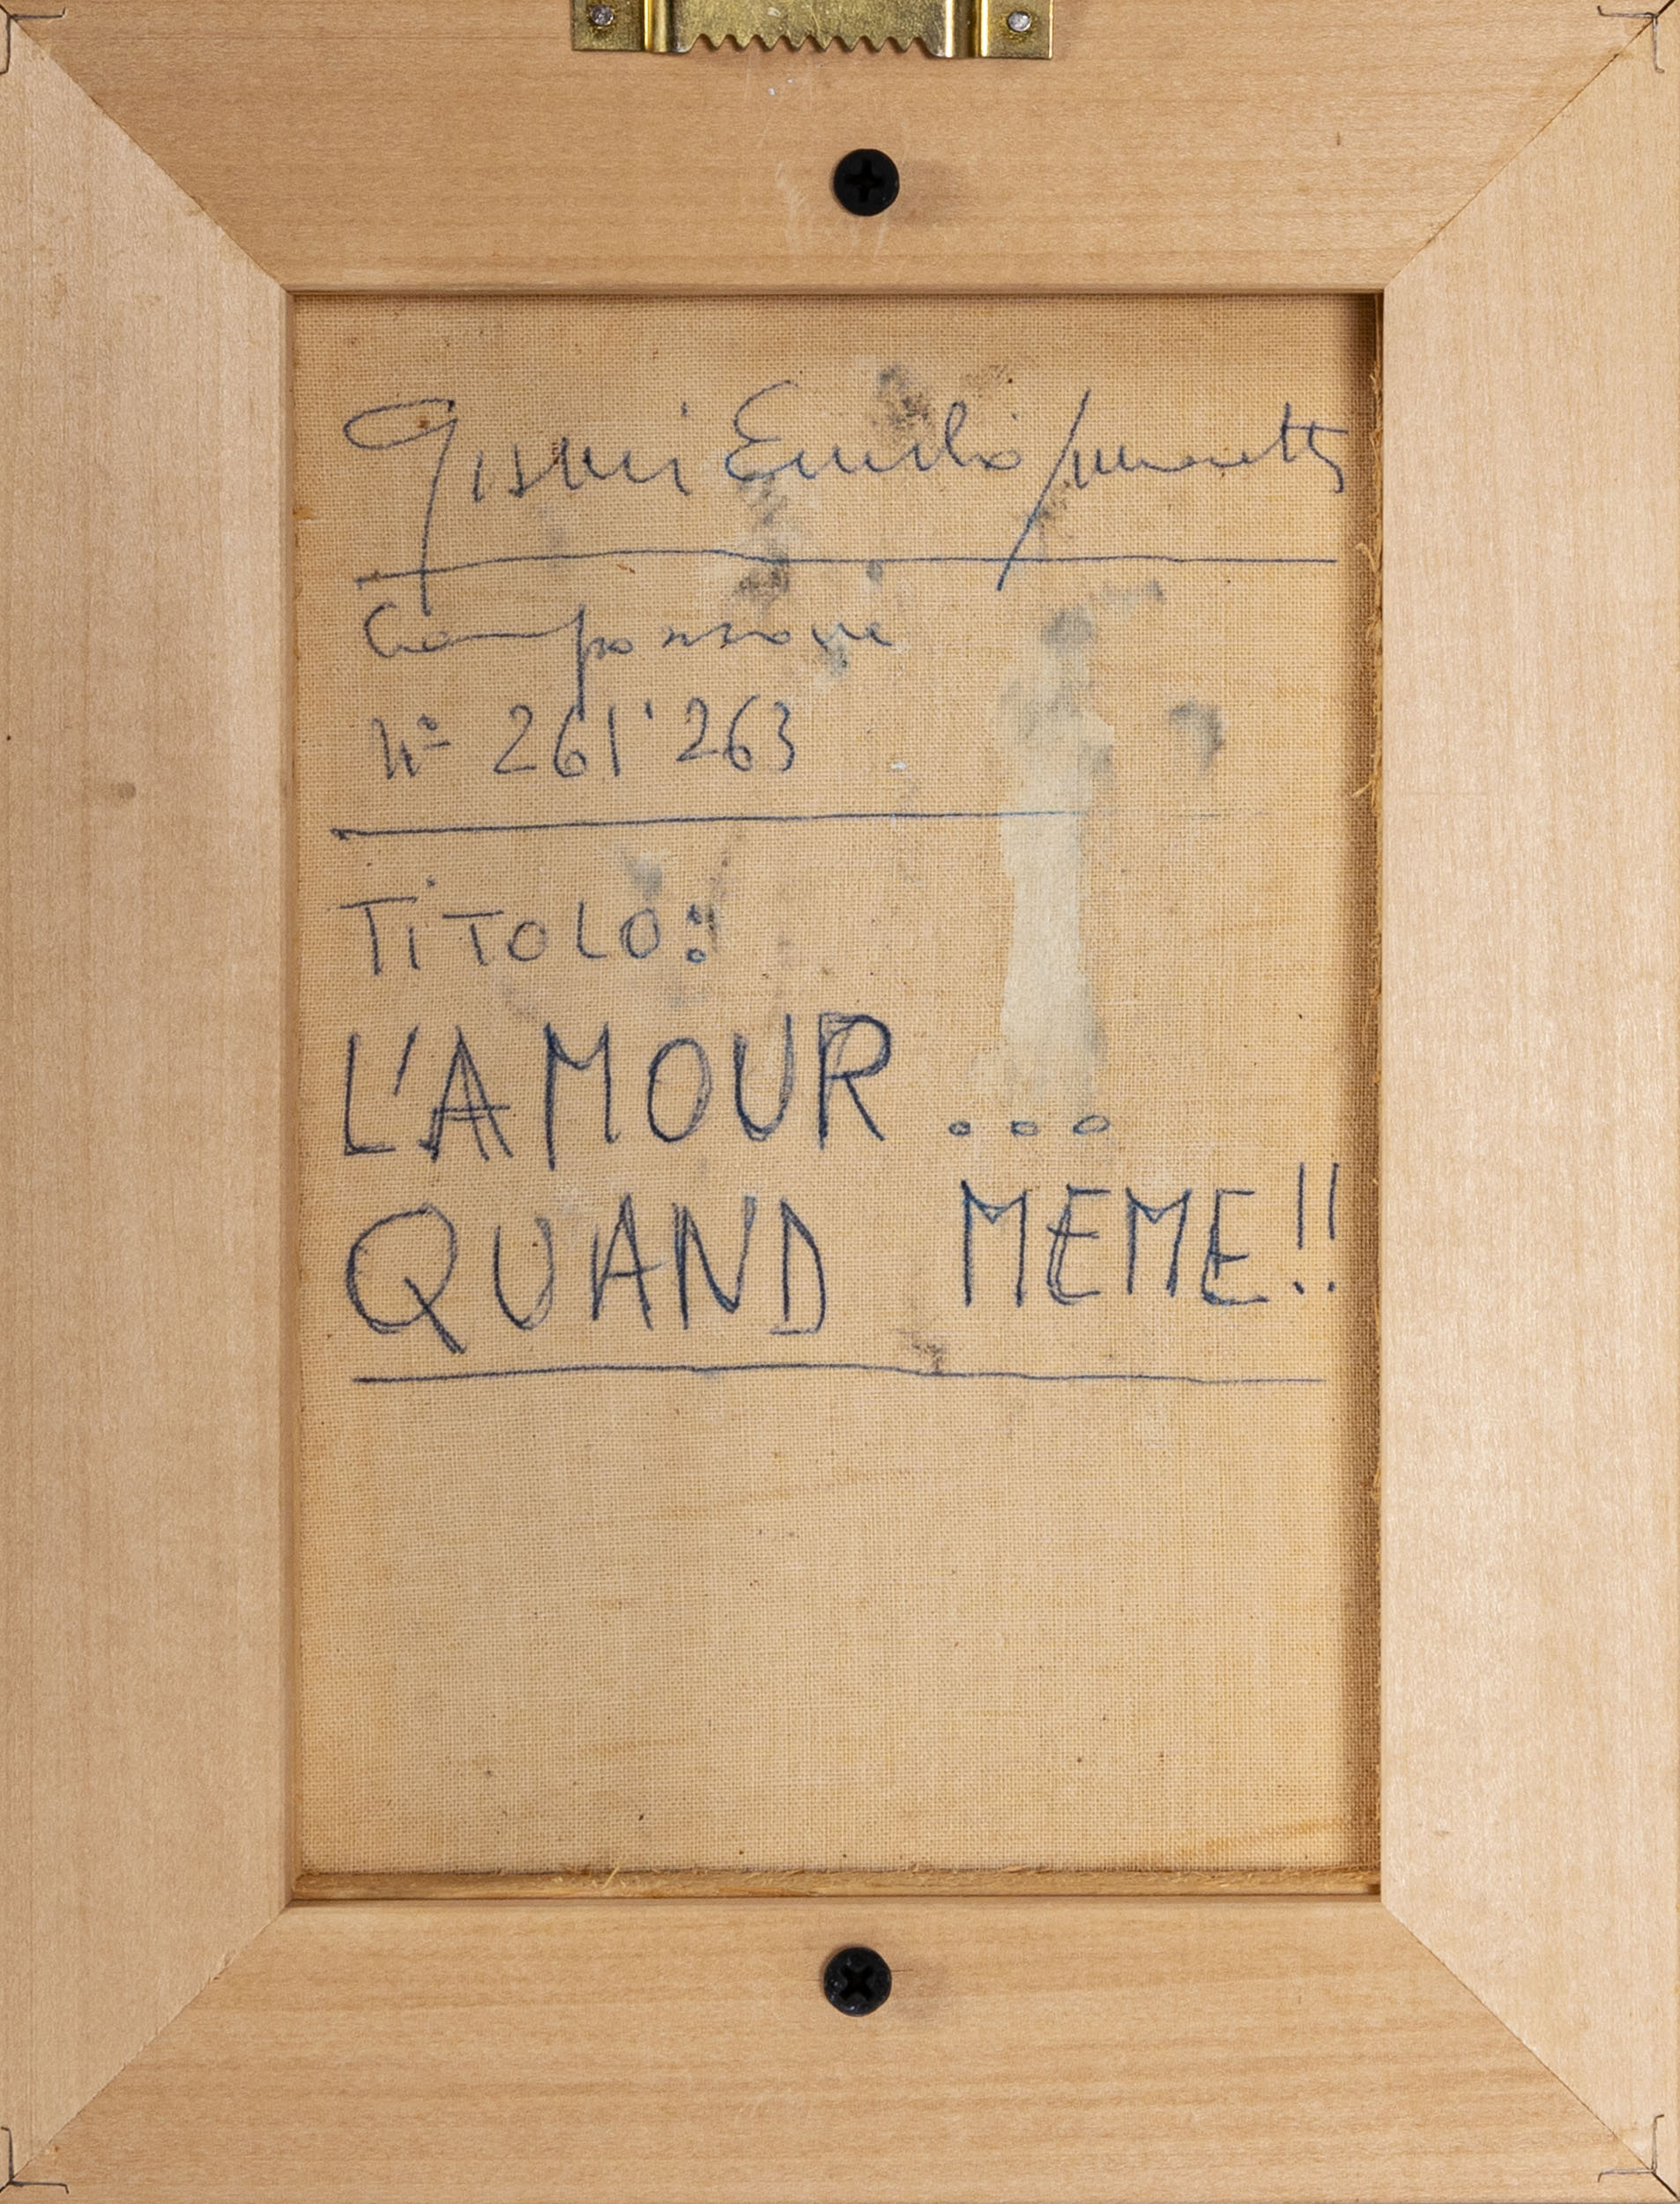 Gianni Emilio Simonetti
Composizione
Nº 261'263
TiTOLO:
L'AMOUR...
QUAND MEME!!